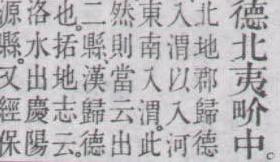 德北夷畍中。
北地郡歸德
入入以入河
東南入渭。此
然則當云出
二縣。漢歸德
也。拓地志云。
洛水出慶陽
源縣。又經保